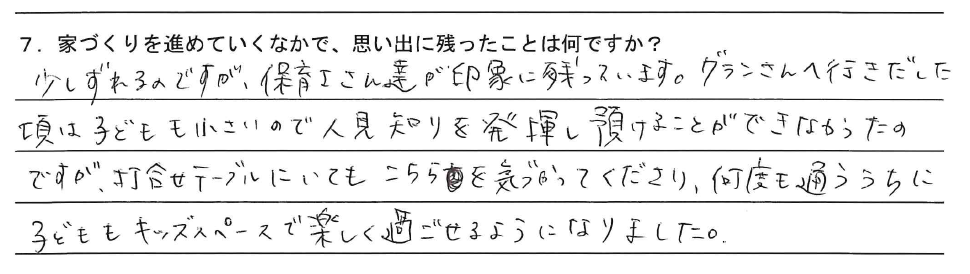 7．家づくりを進めていくなかで、思い出に残ったことは何ですか？
少しずれるのですが、保育士さん達が印象に残っています。グランさんへ行きだした
頃は子どもも小さいので人見知りを発揮し預けることができなかったの
ですが、打合せテーブルにいてもこちらを気づかってくださり、何度も通ううちに
子どももキッズスペースで楽しく過ごせるようになりました。